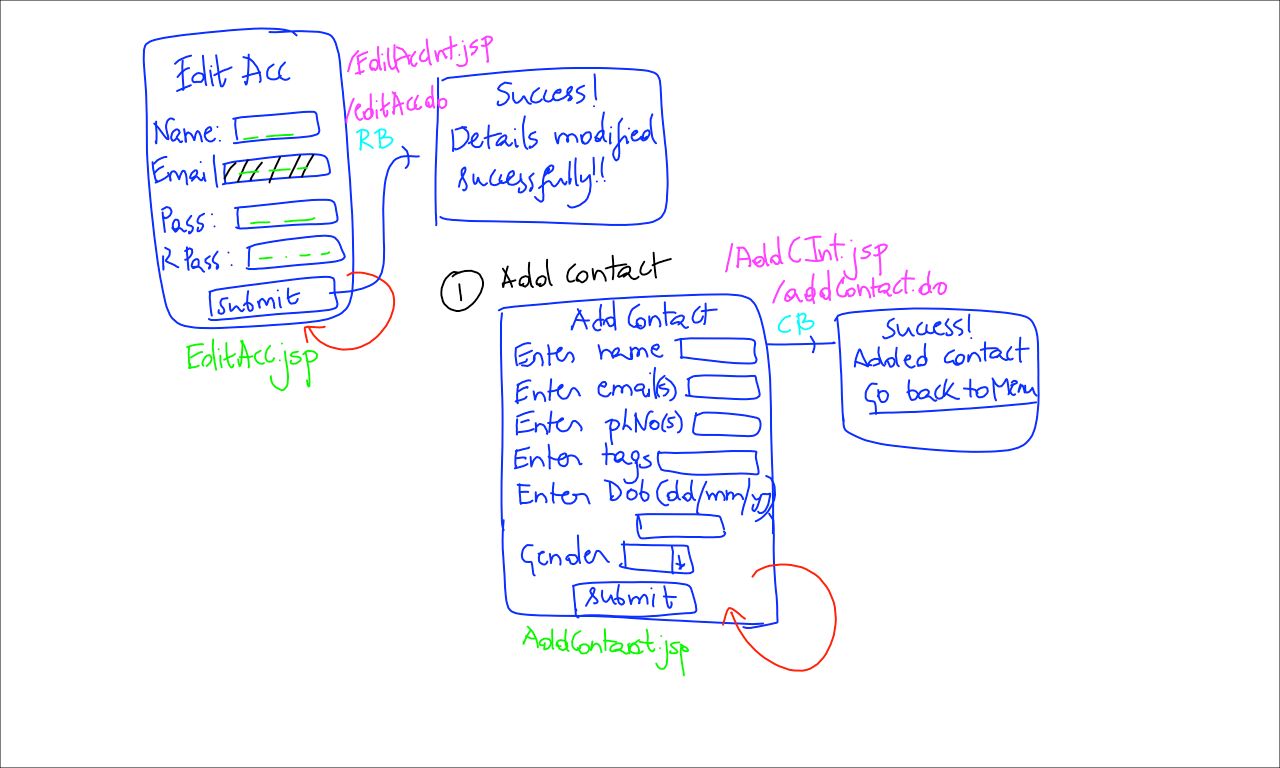 Edit Acc
Name:
Email
Pass:
R Pass:
submit
EditAcc.jsp
/EditAccInt.jsp
/editAcc.do
RB
Success!
Details modified
successfully!!
1 Add contact
Add Contact
Enter name
Enter email(s)
Enter phNo(s)
Enter tags
Enter Dob (dd/mm/yy)
Gender
submit
AddContact.jsp
/AddCInt.jsp
/addContact.do
CB
Success!
Added contact
Go back to Menu